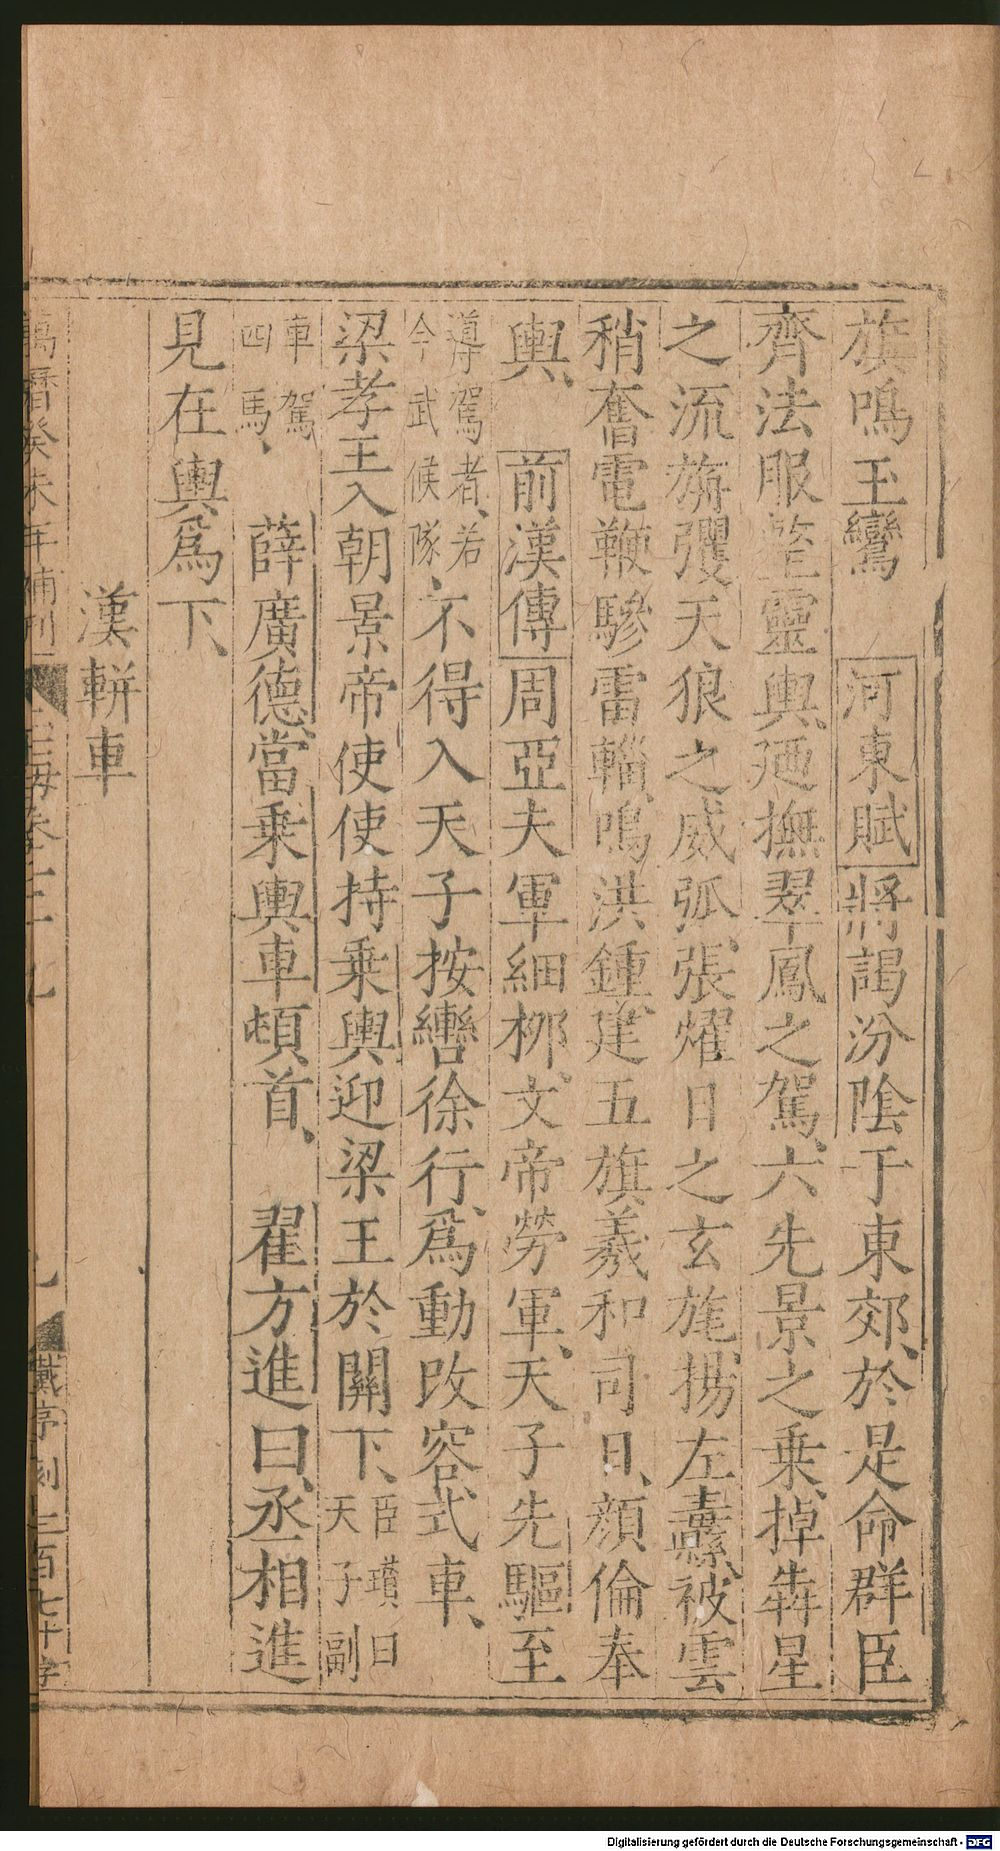 旗鳴玉鸞　河東賦將謁汾陰于東郊、於是命群臣
齊法服整靈輿、廼撫翠鳳之駕、六先景之乗、掉犇星
之流旃彏天狼之威弧、張燿日之玄旄、揚左纛、被雲
梢奮電鞭驂雷輜、鳴洪鍾、建五旗、羲和司日、顔倫奉
輿、　前漢傳周亞夫軍細栁、文帝勞軍、天子先驅至
導駕者、若今武候隊、不得入天子按轡徐行、爲動改容、式車、
梁孝王入朝景帝使使持乗輿迎梁王於關下、臣瓚曰天子副
車駕四馬、　薛廣德、當乗輿車頓首、　翟方進曰、丞相進
見在輿爲下、
漢輧車
萬曆癸未年補刊
戴序刻　百七十字
Digitalisierung gefördert durch die Deutsche Forschungsgemeinschaft - DFG